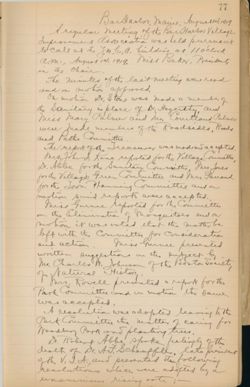 77
Bar Harbor, Maine, August 1st 1919
A regular meeting of the Bar Harbor Village
Improvement Association was held pursuant
to call at the Y.M.C.A. building at 11 o'clock
A.M., August 1st 1919. Miss Parker, President
in the Chair.
The minutes of the last meeting was read
and on motion approved.
On motion Dr. was made a member of
the Sanitary in place of Dr. and
Miss Mary Palmer and Mrs. Courtland Palmer
were made members of the Roadsides, Roads
and Paths Committee.
The report of the Treasurer was read and accepted.
Mrs. John King reported for the Village Committee
Dr. Abbe for the Committee, Mrs. Jones
for the Village Green Committee and Mrs.
for the Town Planning Committee and on
motion said reports were accepted.
Miss reported for the Committee
on the Elimination of Mosquitoes and on
motion it was voted that the matter be
left with the Committee for consideration
and action. Miss presented
written suggestions on the subject by
Mr. Charles W. Johnson of the Boston Society
of Natural History.
Mrs. presented a report for the
Park Committee and on motion the same
was accepted.
A resolution was adopted leaving to the
Park Committee the matter of caring for
Park and planting trees.
Dr. Robert Abbe spoke feelingly of the
death of Dr. late president
of the V.I.A. and presented the following
resolutions which were adopted by a
unanimous rising vote.